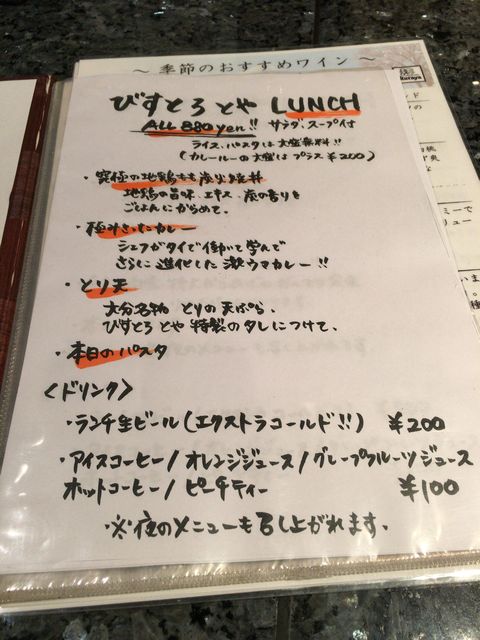 ～季節のおすすめワイン～
びすとろ とや LUNCH
ALL 880yen!! サラダ、スープ付
ライス、パスタは大盛無料!!
(カレールーの大盛は プラス ¥200)
・究極の地鶏もも炭火焼丼
地鶏の旨味、エキス、炭の香りを
ごはんにからめて。
・極みさいたカレー
シェフがタイで働いて学んで
さらに進化した激ウマカレー!!
・とり天
大分名物 とりの天ぷら、
びすとろ とや 特製のタレにつけて、
・本日のパスタ
<ドリンク>
・ランチ生ビール(エクストラコールド!!) ¥200
・アイスコーヒー/オレンジジュース/グレープフルーツジュース
ホットコーヒー/ピーチティー ¥100
・※夜のメニューも召し上がれます。